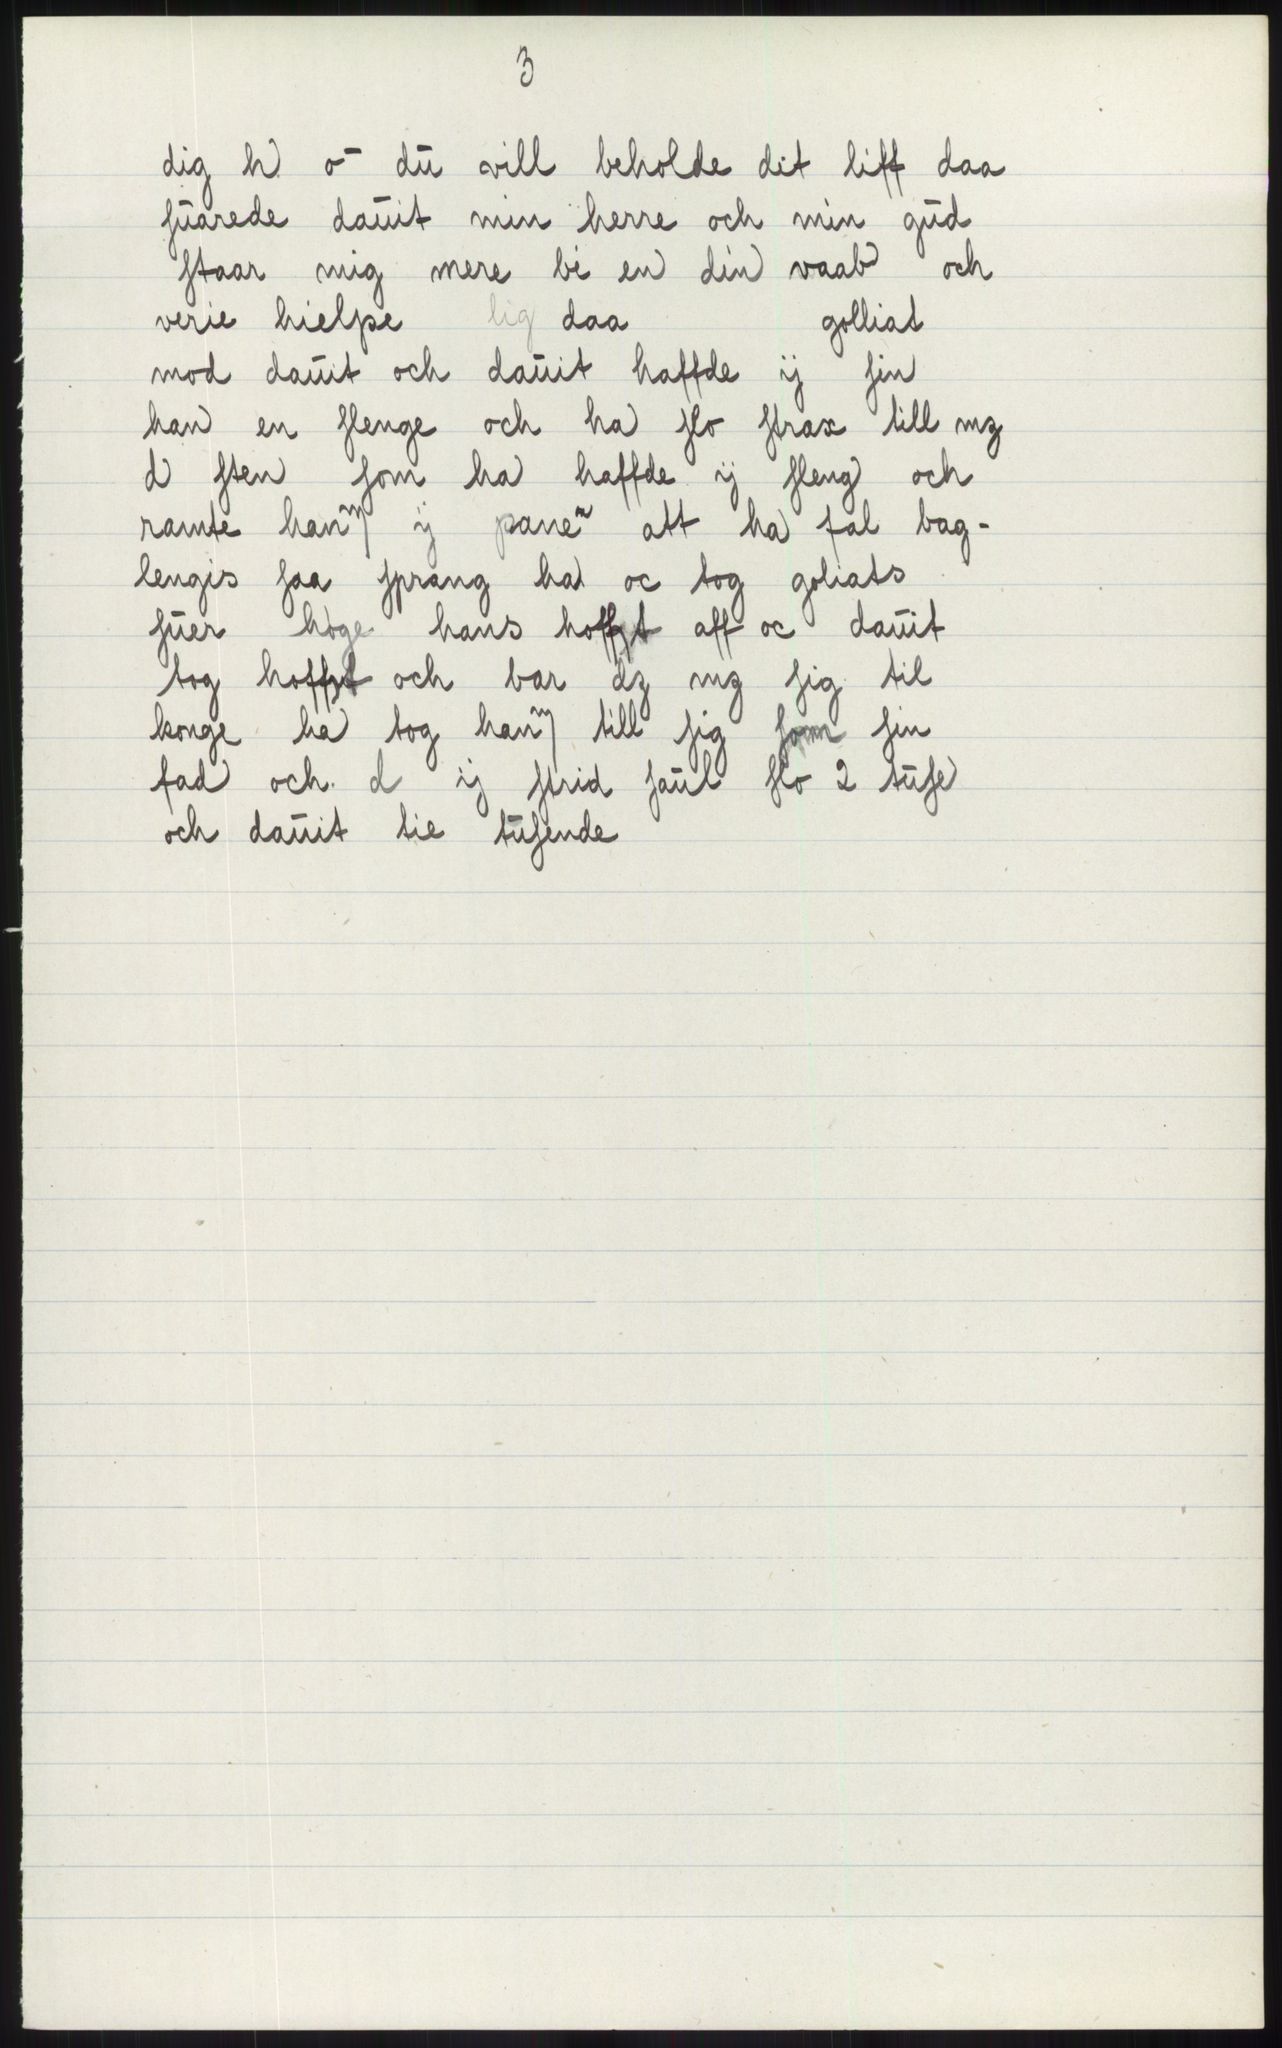 3
dig h o- dū vill beholde dit liff daa
ſūarede dauit min herre och min gūd
ſtaar mig mere bi en din vaab och
verie hielpe lig daa golliat
mod dauit och dauit haffde ij ſin
han en ſlenge och ha ſlo ſtrax till mz
d ſten ſom ha haffde ij ſleng och
ramte han ij pane att ha fal bag-
lengis ſaa ſprang ha oc tog goliats
ſūer høge hans hoffɡt aff oc dauit
tog hoffɡt och bar dz mz ſig til
konge ha tog han till ſig ſom ſin
fad och d ij ſtrid ſaūl ſlo 2 tūſe
och dauit tie tūſende